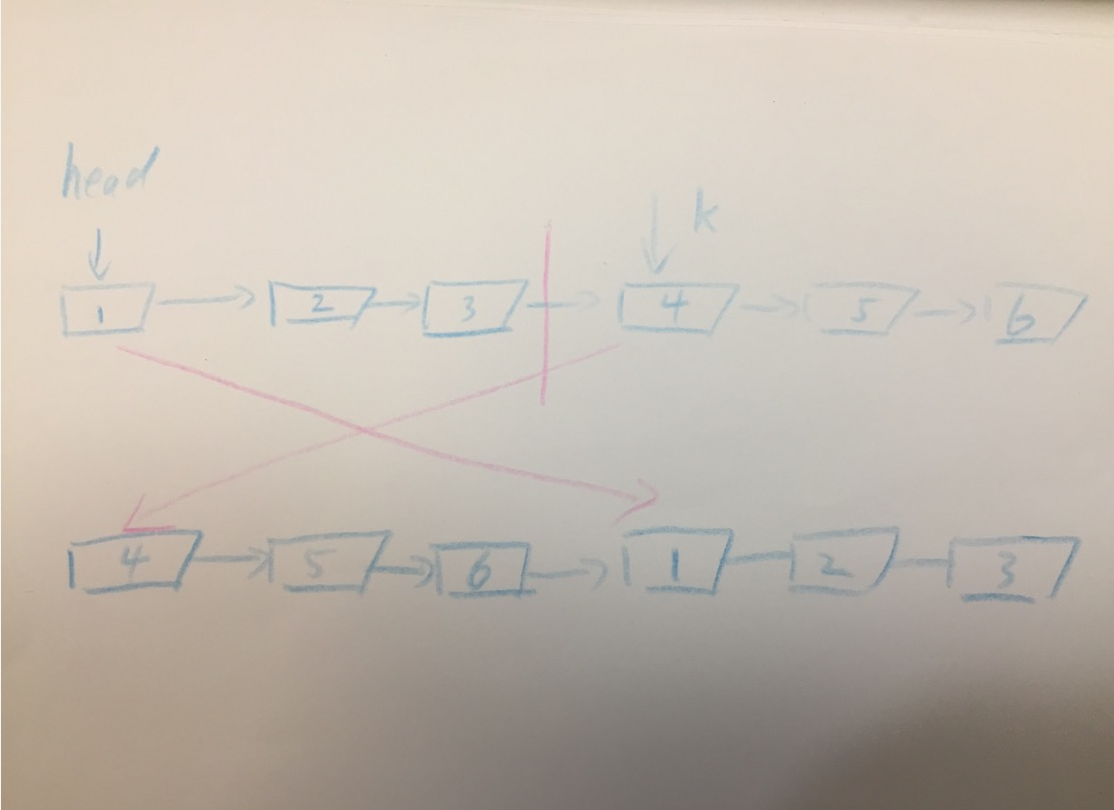 head
k
1 2 3 4 5 6
4 5 6 1 2 3